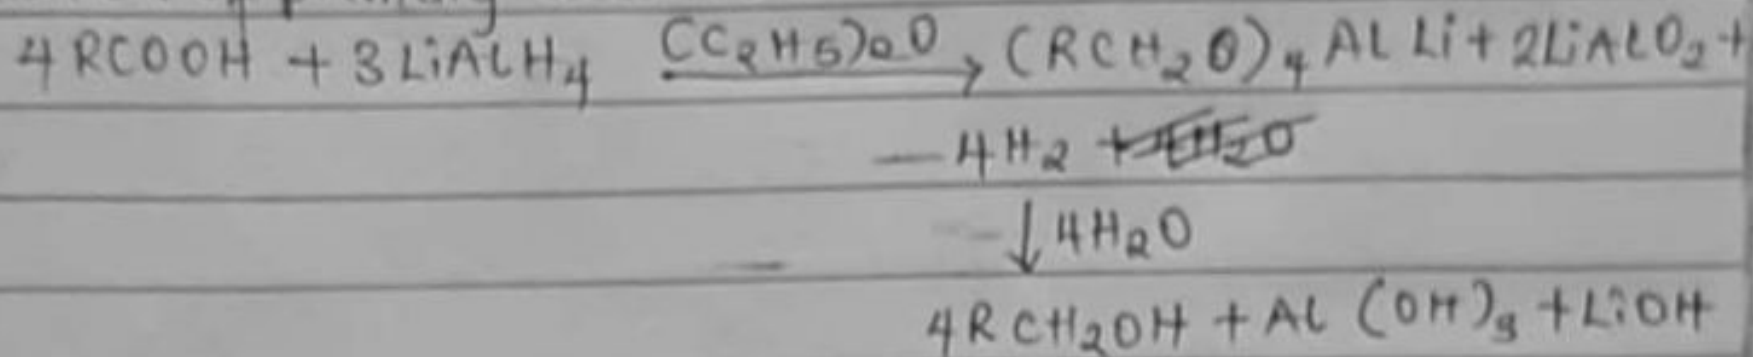 4RCOOH + 3LiAlH₄ (C₂H₅)₂O → (RCH₂O)₄AlLi + 2LiAlO₂ +
4H₂
↓ 4H₂O
4RCH₂OH + Al(OH)₃ + LiOH